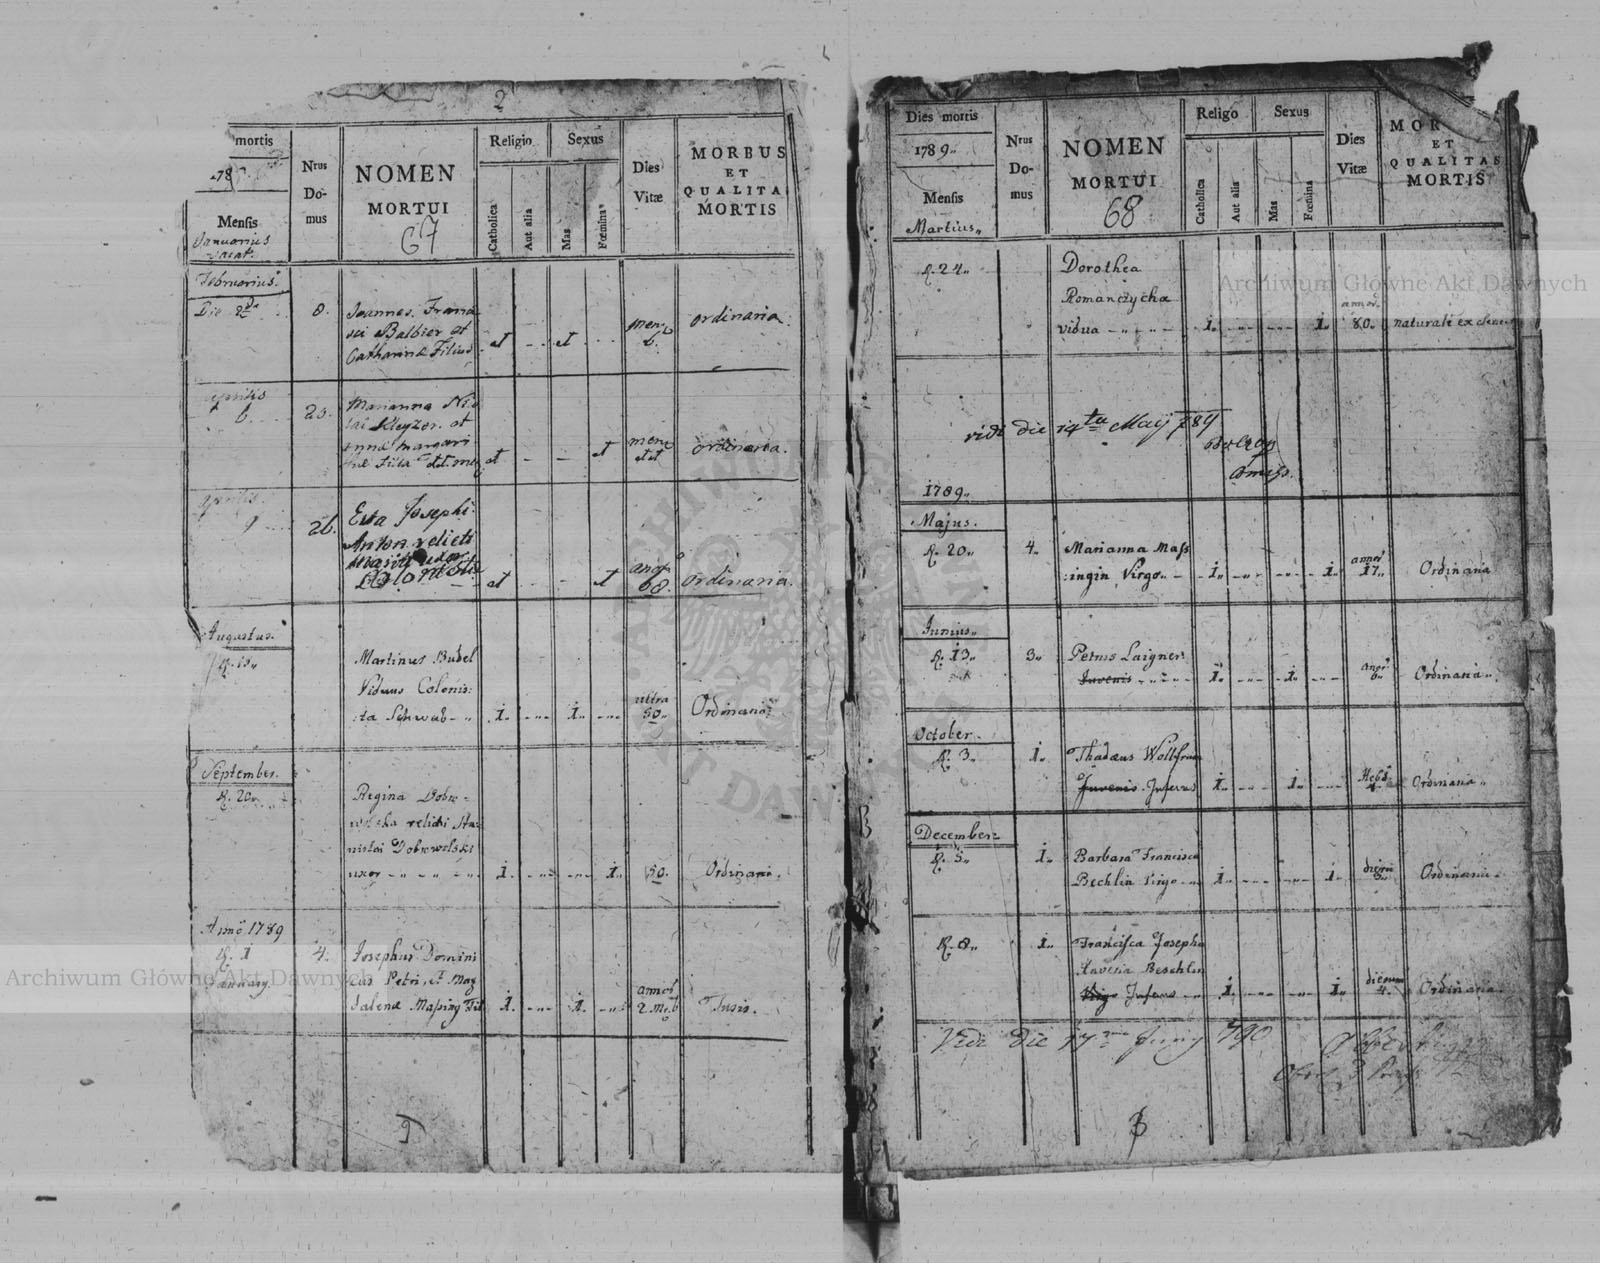 2
mortis
178
Mensis
Nrus Do-mus
NOMEN
MORTUI
67
Religio
Catholica
Aut alia
Sexus
Mas
Fœmina
Dies Vitæ
MORBUS
ET
QUALITAS
MORTIS
Januarius
vacat.
Februarius
Die 2da
8.
Joannes Franci
sci Balbier et
Catharinæ Filius
et
et
mens.
6.
ordinaria.
Aprilis
6
20.
Marianna Nico
lai Kleyzer et
Annæ Margari
thæ Filia
et
et
ordinaria.
Aprilis
9
26.
Eva Josephi
Anton relicti
mariti uxor
et
et
68.
ordinaria.
Augustus.
R. 10"
Martinus Budel
Viduus Colonis:
:ta Schwab
1.
1.
ultra
50"
Ordinaria
September.
R. 20.
Regina Dobro=
wolska relicti Sta=
nislai Dobrowolski
uxor
1.
1.
50.
Ordinaria.
Anno 1789
R. 1
January.
4.
Josephus Domini
cus Petri, et Mag
dalenæ Masing Fil
1.
1.
annor
2 M. 6
Tusis.
Dies mortis
1789"
Mensis
Martius"
Nrus Do-mus
NOMEN
MORTUI
68
Religo
Catholica
Aut alia
Sexus
Mas
Fœmina
Dies Vitæ
MOR
ET
QUALITAS
MORTIS
R. 24"
Dorothea
Romanczycha
vidua
1.
1.
annor.
80"
naturali ex
vidi die 14ta Maij 789
1789"
Majus.
R. 20"
4"
Marianna Mass
:ingin Virgo"
1.
1.
annor
17"
Ordinaria
Junius"
R. 13"
3"
Petrus Laigner
Juvenis
1.
1.
annor
6"
Ordinaria"
October.
R. 3"
1.
Thadæus Wolfram
Juvenis Infans
1.
1.
Hebd.
Ordinaria"
December:
R. 5"
1.
Barbara Francisca
Bechlin Virgo
1.
1.
dierum
3"
Ordinaria.
R. 8"
1.
Francisca Josepha
Xaveria Beschlin
Virgo Infans
1.
1.
dierum
4.
Ordinaria.
Vidi die 17ma Juny 790
Archiwum Główne Akt Dawnych
Archiwum Główne Akt Dawnych
ARCHIWUM GŁÓWNE AKT DAWNYCH